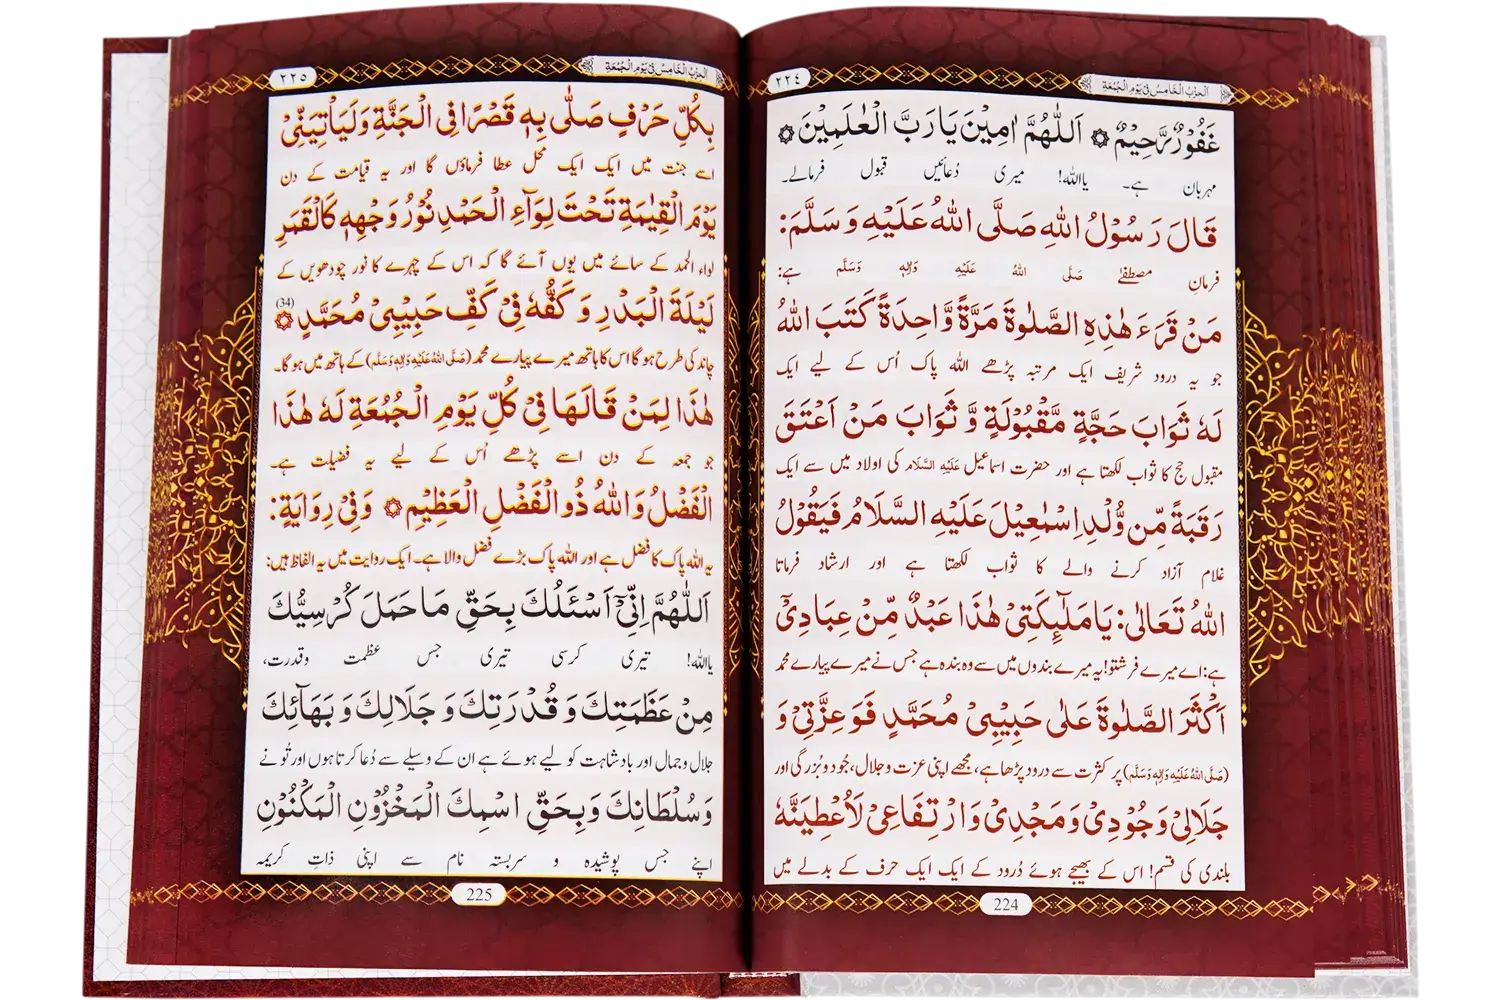 ٢٢٤
الحزب الخامس في يوم الجمعة
غَفُوْرٌ رَّحِيْمٌ ۞ اَللّٰهُمَّ اٰمِيْنَ يَا رَبَّ الْعٰلَمِيْنَ ۞
مہربان ہے۔ یااللہ! میری دُعائیں قبول فرمالے۔
قَالَ رَسُوْلُ اللهِ صَلَّى اللهُ عَلَيْهِ وَسَلَّمَ:
فرمانِ مصطفٰے صَلَّی اللهُ عَلَیْهِ وَاٰلِهٖ وَسَلَّم ہے:
مَنْ قَرَءَ هٰذِهِ الصَّلٰوةَ مَرَّةً وَّاحِدَةً كَتَبَ اللهُ
جو یہ درود شریف ایک مرتبہ پڑھے اللہ پاک اُس کے لیے ایک
لَهٗ ثَوَابَ حَجَّةٍ مَّقْبُوْلَةٍ وَّ ثَوَابَ مَنْ اَعْتَقَ
مقبول حج کا ثواب لکھتا ہے اور حضرت اسماعیل عَلَیْهِ السَّلَام کی اولاد میں سے ایک
رَقَبَةً مِّنْ وُّلْدِ اِسْمٰعِيْلَ عَلَيْهِ السَّلَامُ فَيَقُوْلُ
غلام آزاد کرنے والے کا ثواب لکھتا ہے اور ارشاد فرماتا
اللهُ تَعَالٰى: يَا مَلٰٓئِكَتِيْ هٰذَا عَبْدٌ مِّنْ عِبَادِيْٓ
ہے: اے میرے فرشتو! یہ میرے بندوں میں سے وہ بندہ ہے جس نے میرے پیارے محمد
اَكْثَرَ الصَّلٰوةَ عَلٰى حَبِيْبِيْ مُحَمَّدٍ فَوَعِزَّتِيْ وَ
(صَلَّی اللهُ عَلَیْهِ وَاٰلِهٖ وَسَلَّم) پر کثرت سے درود پڑھا ہے، مجھے اپنی عزت و جلال، جُود و بُزرگی اور
جَلَالِيْ وَجُوْدِيْ وَمَجْدِيْ وَارْتِفَاعِيْ لَاُعْطِيَنَّهٗ
بلندی کی قسم! اس کے بھیجے ہوئے دُرود کے ایک ایک حرف کے بدلے میں
224
٢٢٥
الحزب الخامس في يوم الجمعة
بِكُلِّ حَرْفٍ صَلّٰى بِهٖ قَصْرًا فِى الْجَنَّةِ وَلَيَاْتِيَنِّيْ
اسے جنت میں ایک ایک محل عطا فرماؤں گا اور یہ قیامت کے دن
يَوْمَ الْقِيٰمَةِ تَحْتَ لِوَآءِ الْحَمْدِ نُوْرُ وَجْهِهٖ كَالْقَمَرِ
لواء الحمد کے سائے میں یوں آئے گا کہ اس کے چہرے کا نور چودھویں کے
لَيْلَةَ الْبَدْرِ وَ كَفُّهٗ فِيْ كَفِّ حَبِيْبِيْ مُحَمَّدٍ (34) ۞
چاند کی طرح ہوگا اس کا ہاتھ میرے پیارے محمد (صَلَّی اللهُ عَلَیْهِ وَاٰلِهٖ وَسَلَّم) کے ہاتھ میں ہوگا۔
هٰذَا لِمَنْ قَالَهَا فِيْ كُلِّ يَوْمِ الْجُمُعَةِ لَهٗ هٰذَا
جو جمعہ کے دن اسے پڑھے اُس کے لیے یہ فضیلت ہے۔
الْفَضْلُ وَاللهُ ذُو الْفَضْلِ الْعَظِيْمِ ۞ وَفِيْ رِوَايَةٍ:
یہ اللہ پاک کا فضل ہے اور اللہ پاک بڑے فضل والا ہے۔ ایک روایت میں یہ الفاظ ہیں:
اَللّٰهُمَّ اِنِّيْٓ اَسْئَلُكَ بِحَقِّ مَا حَمَلَ كُرْسِيُّكَ
یااللہ! تیری کرسی تیری جس عظمت وقدرت،
مِنْ عَظَمَتِكَ وَ قُدْرَتِكَ وَ جَلَالِكَ وَ بَهَآئِكَ
جلال و جمال اور بادشاہت کو لیے ہوئے ہے ان کے وسیلے سے دُعا کرتا ہوں اور تُو نے
وَسُلْطَانِكَ وَبِحَقِّ اسْمِكَ الْمَخْزُوْنِ الْمَكْنُوْنِ
اپنے جس پوشیدہ و سربستہ نام سے اپنی ذاتِ کریمہ
225